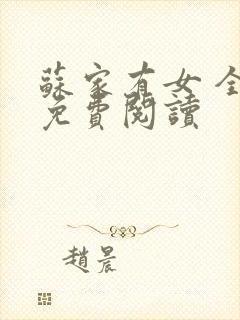 蘇家有女 全
免費閱讀
趙晨